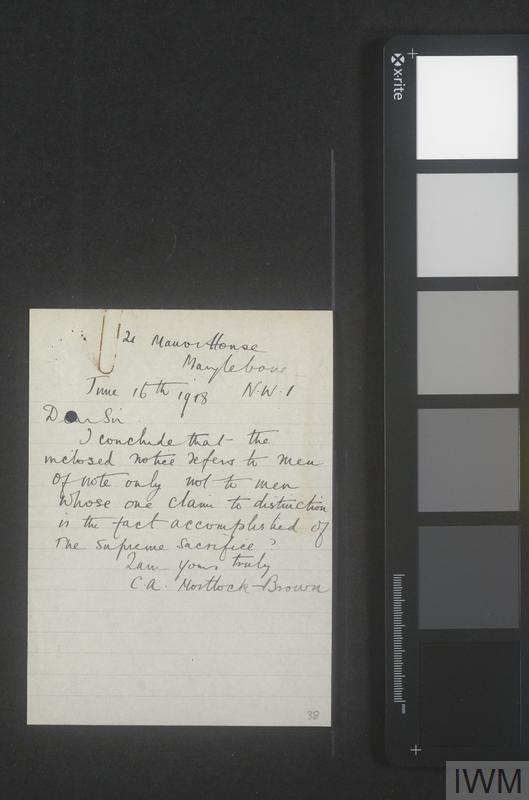 12 Manor House
Marylebone
June 16th 1918 N.W.1
Dear Sir
I conclude that the
inclosed notice refers to men
of note only not to men
whose one claim to distinction
is the fact accomplished of
the supreme sacrifice?
I am yours truly
C.A. Mortlock-Brown
38
x-rite
mm
IWM